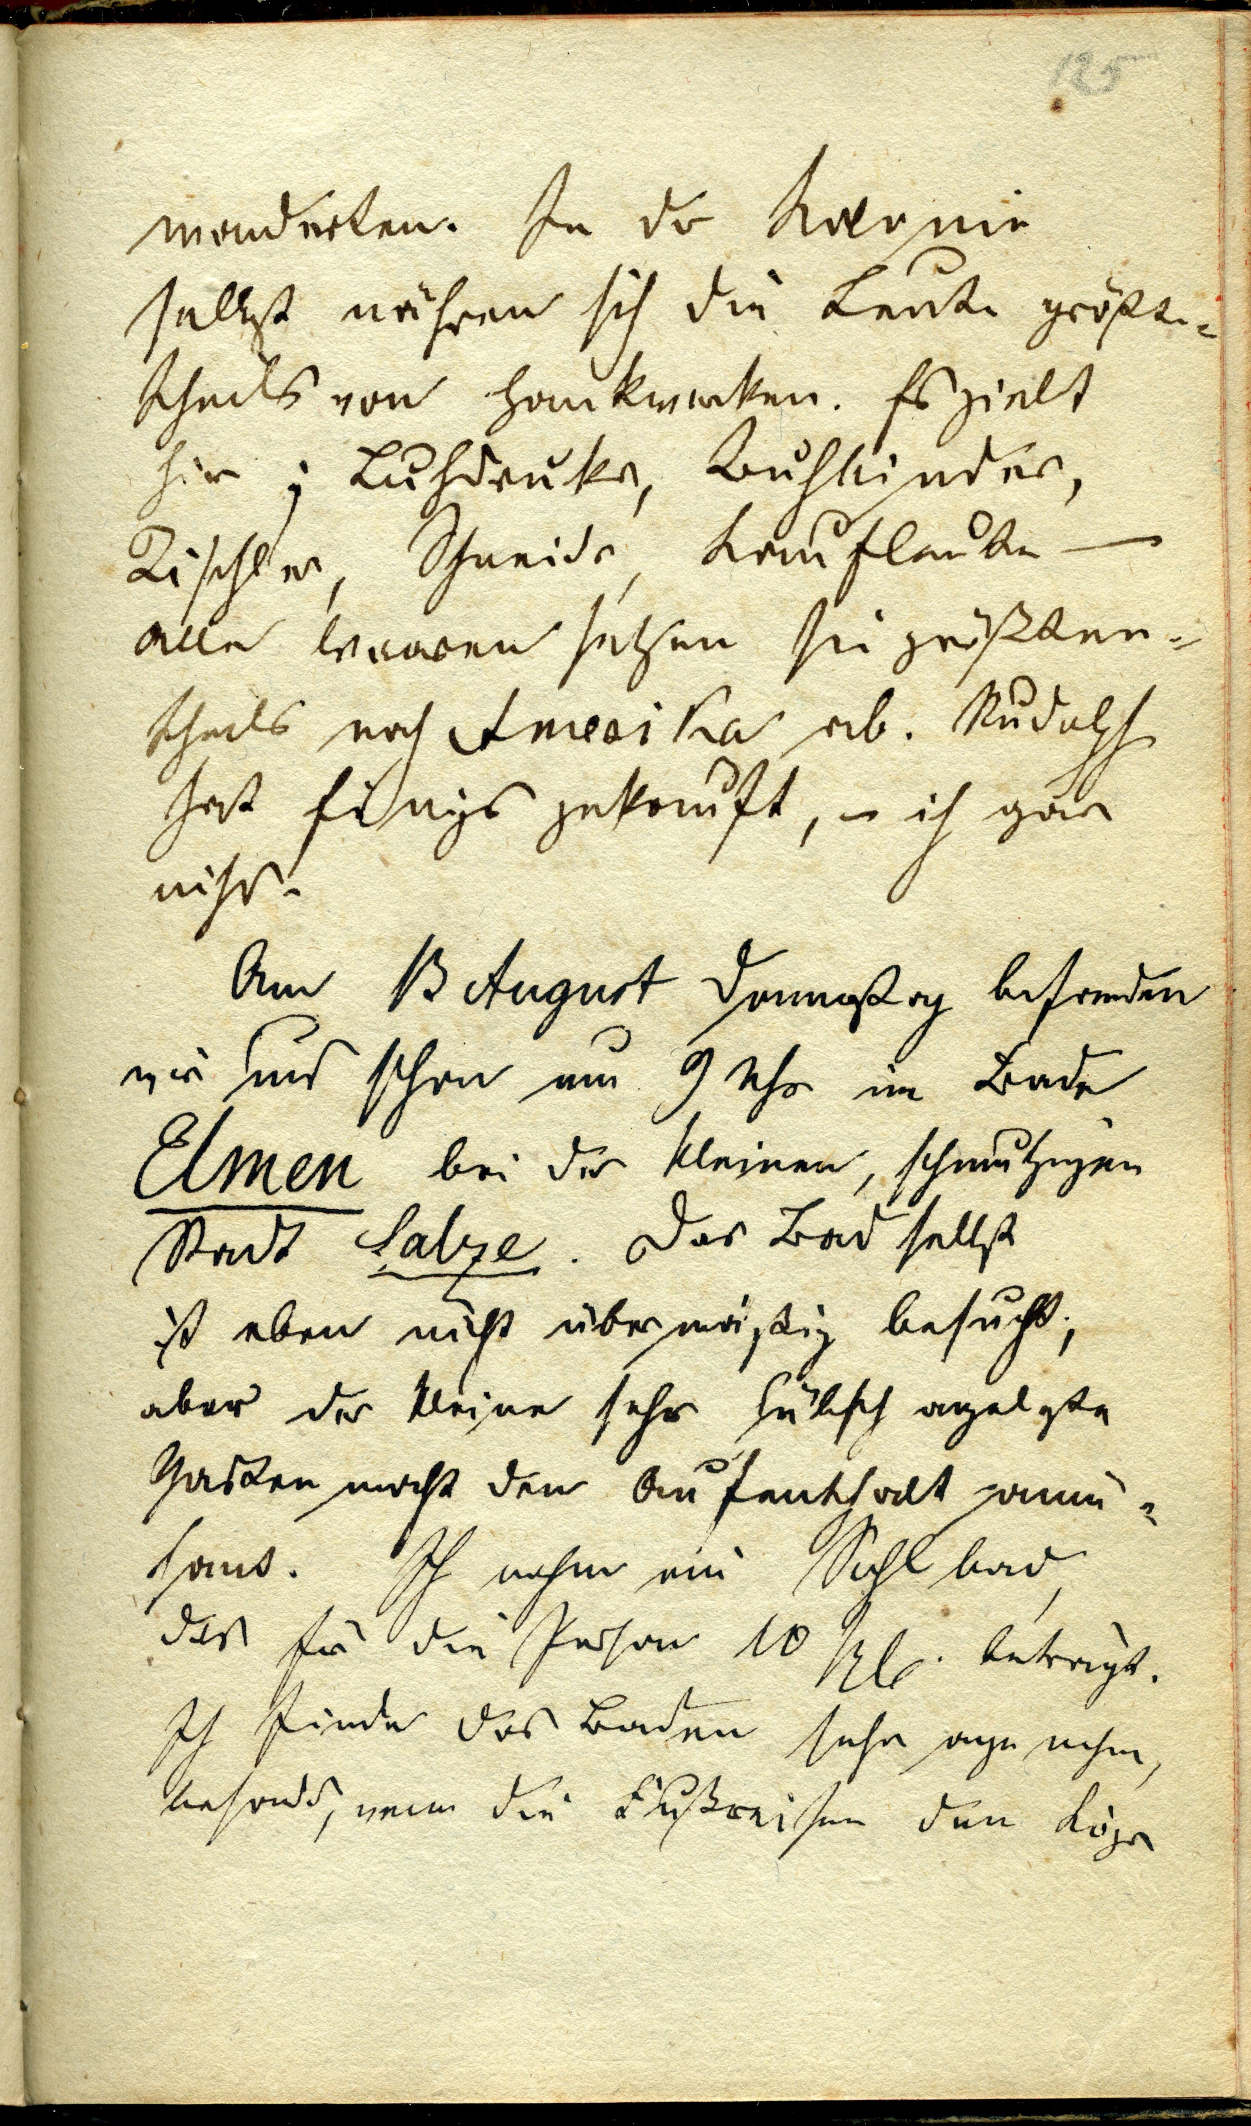 125
wanderten. In der Kolonie
selbst nähren sich die Leute größten=
theils von Handwerken. Es giebt
hier Buchdrucker, Buchbinder,
Tischler, Schneider, Kaufleute —
alle Waaren setzen sie größten=
theils nach Amerika ab. Rudolph
hat Einiges gekauft, – ich gar
nichts.
Am 13 August Donnerstag befanden
wir uns schon um 9 Uhr im Bade
Elmen bei der kleinen, schmutzigen
Stadt Salze. Das Bad selbst
ist eben nicht übermäßig besucht,
aber der kleine sehr hübsch angelegte
Garten macht den Aufenthalt amü=
sant. Ich nahm ein Sohlbad,
das für die Person 10 Sgl. beträgt.
Ich finde das Baden sehr angenehm,
besonders, wenn die Fußreisen den Körper